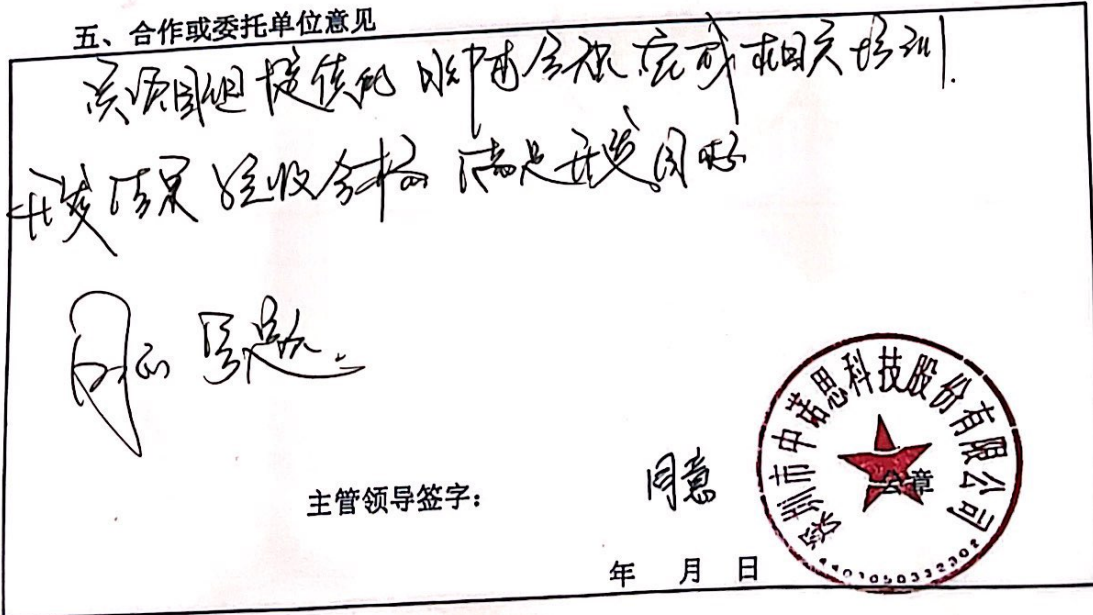 五、合作或委托单位意见
该项目组提供的 软件 完成 相关培训.
开发结果 验收合格 满足开发目标
同意 结题.
主管领导签字:
同意
深圳市中诺思科技股份有限公司
公章
4403050332302
年 月 日